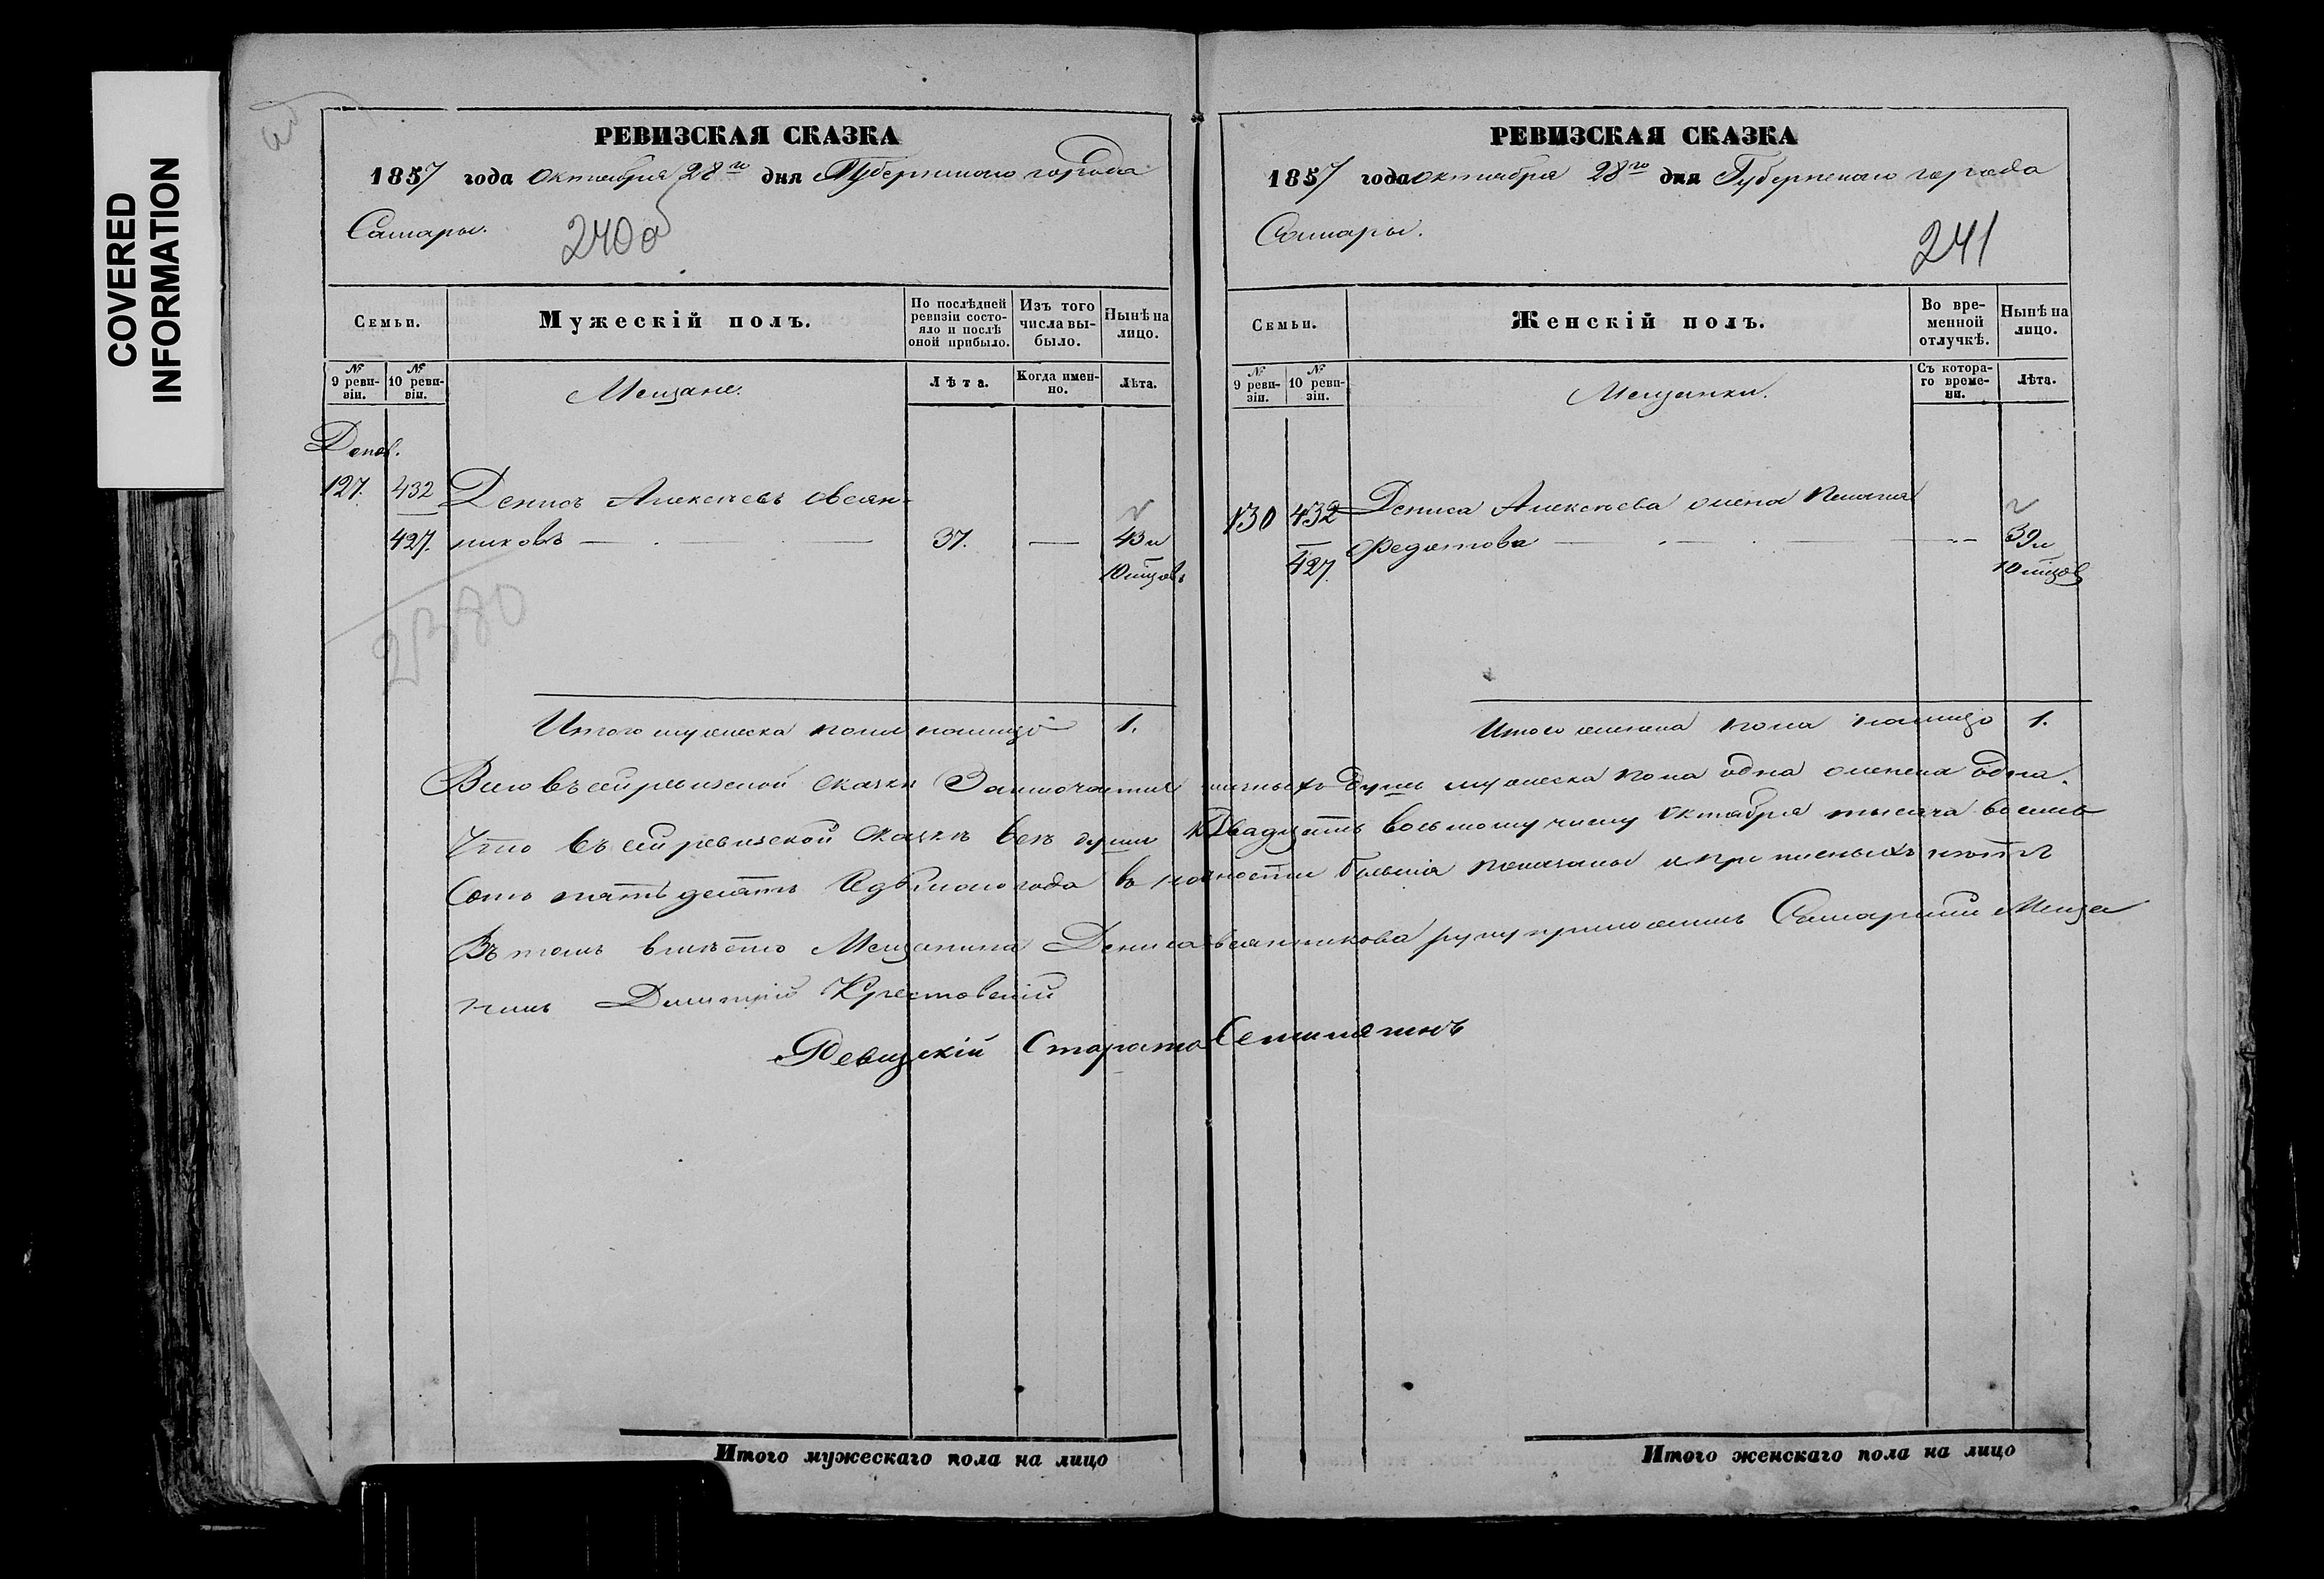 COVERED
INFORMATION
РЕВИЗСКАЯ СКАЗКА
1857 года Октября 28го дня Губернскаго города
Самары.
240об
Семьи.
Мужескій полъ.
По послѣдней ревизіи состояло и послѣ оной прибыло.
Изъ того числа выбыло.
Нынѣ на лицо.
№ 9 ревизіи.
№ 10 ревизіи.
Мещане.
Лѣта.
Когда именно.
Лѣта.
Допол.
127. 432 Денисъ Алексѣевъ Овсян-
427. никовъ — 37. — 43 и
10 мѣцовъ
2380
Итого мужеска пола налицо 1.
РЕВИЗСКАЯ СКАЗКА
1857 года октября 28го дня Губернскаго города
Самары.
241
Семьи.
Женскій полъ.
Во временной отлучкѣ.
Нынѣ на лицо.
№ 9 ревизіи.
№ 10 ревизіи.
Мещанки.
Съ котораго времени.
Лѣта.
130 432 Дениса Алексѣева жена Пелагея
427. Федотова — 39 и
10 мѣцов
Итого женска пола налицо 1.
Всего въ сей ревизской сказки Заключается душъ мужеска пола одна женска одна.
Что въ сей ревизской сказкѣ всѣ души къ Двадцать восьмому числу Октября тысяча восемь
Сотъ пятьдесятъ Седьмого года в показаны и прописныхъ нѣтъ
Въ томъ вмѣсто Мещанина Дениса Овсянникова руку приложилъ Самарскій Меща
нинъ Дмитрій Крестовскій
Ревизскій Староста
Итого мужескаго пола на лицо
Итого женскаго пола на лицо